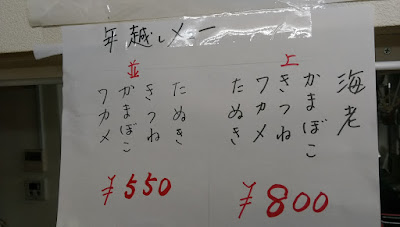 年越しメー
上
海老
かまぼこ
きつね
ワカメ
たぬき
¥800
並
たぬき
きつね
かまぼこ
ワカメ
¥550